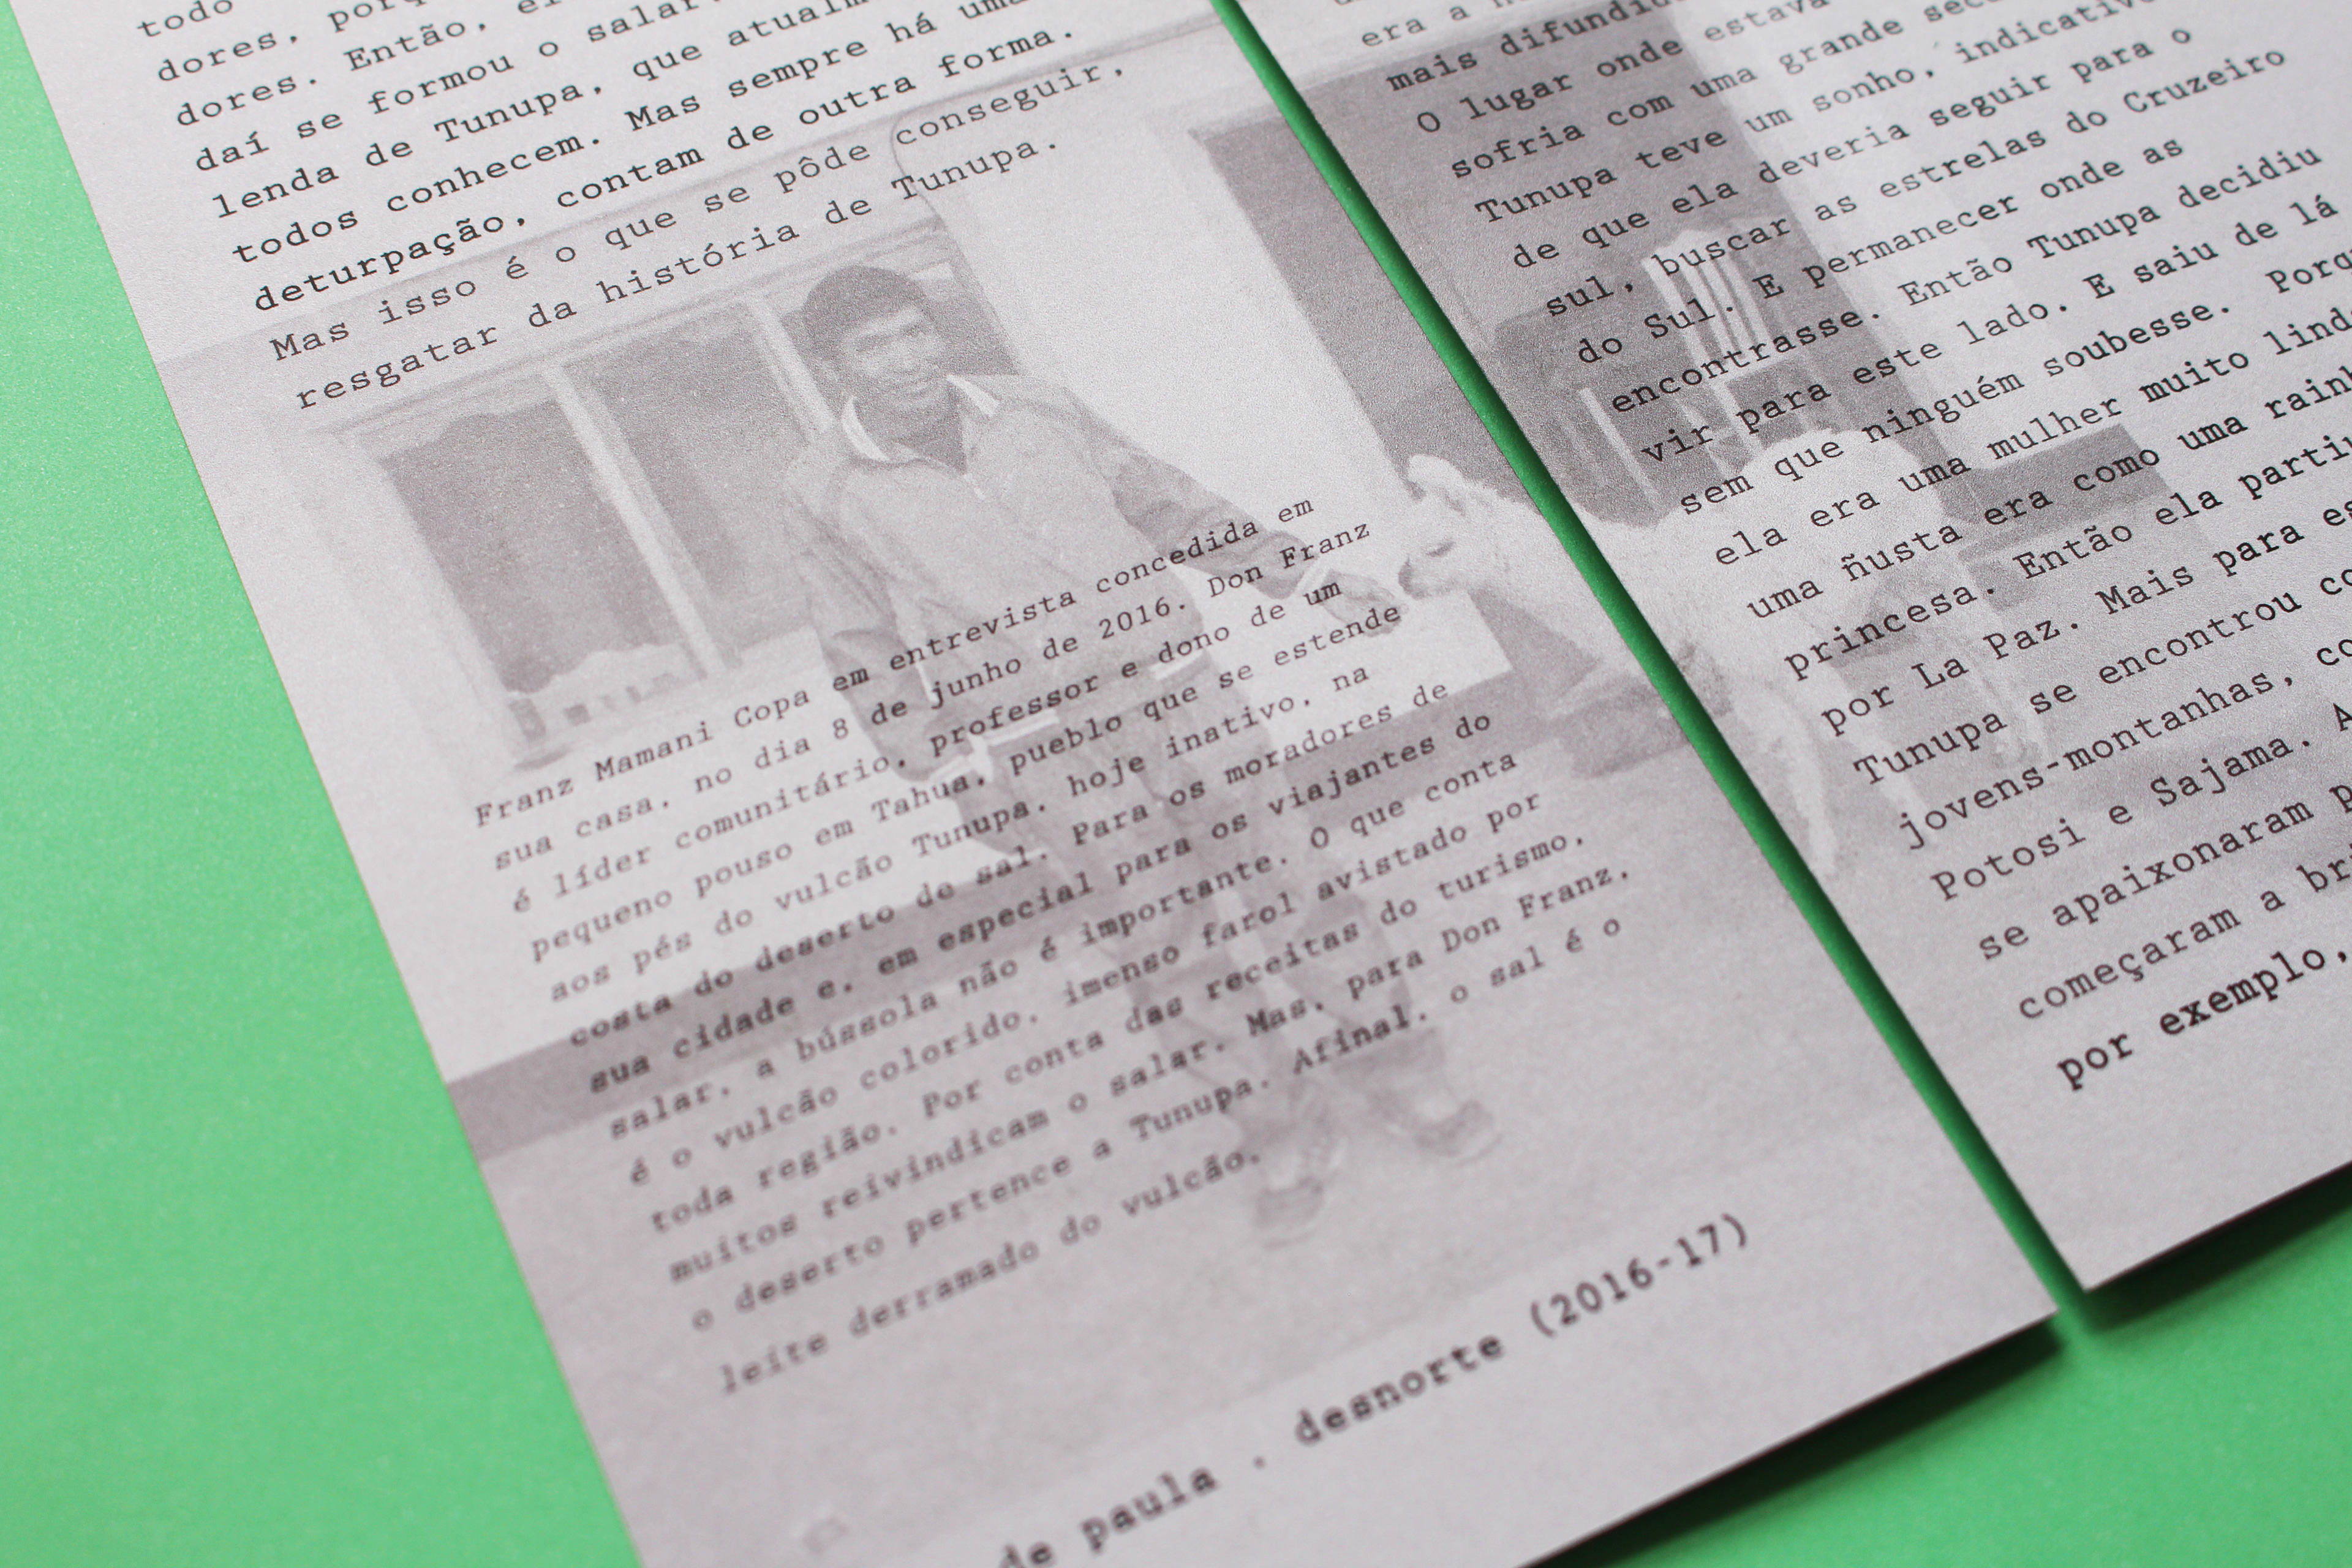 todo
dores, porq
dores. Então, el
daí se formou o salar.
lenda de Tunupa, que atualm
todos conhecem. Mas sempre há uma
deturpação, contam de outra forma.
Mas isso é o que se pôde conseguir,
resgatar da história de Tunupa.
Franz Mamani Copa em entrevista concedida em
sua casa, no dia 8 de junho de 2016. Don Franz
é líder comunitário, professor e dono de um
pequeno pouso em Tahua, pueblo que se estende
aos pés do vulcão Tunupa, hoje inativo, na
costa do deserto de sal. Para os moradores de
sua cidade e, em especial para os viajantes do
salar, a bússola não é importante. O que conta
é o vulcão colorido, imenso farol avistado por
toda região. Por conta das receitas do turismo,
muitos reivindicam o salar. Mas, para Don Franz,
o deserto pertence a Tunupa. Afinal, o sal é o
leite derramado do vulcão.
de paula . desnorte (2016-17)
era a
mais difundid
O lugar onde estava
sofria com uma grande sec
Tunupa teve um sonho, indicativ
de que ela deveria seguir para o
sul, buscar as estrelas do Cruzeiro
do Sul. E permanecer onde as
encontrasse. Então Tunupa decidiu
vir para este lado. E saiu de lá
sem que ninguém soubesse. Porq
ela era uma mulher muito lind
uma ñusta era como uma rainh
princesa. Então ela partiu
por La Paz. Mais para es
Tunupa se encontrou co
jovens-montanhas, co
Potosi e Sajama. A
se apaixonaram p
começaram a bri
por exemplo,